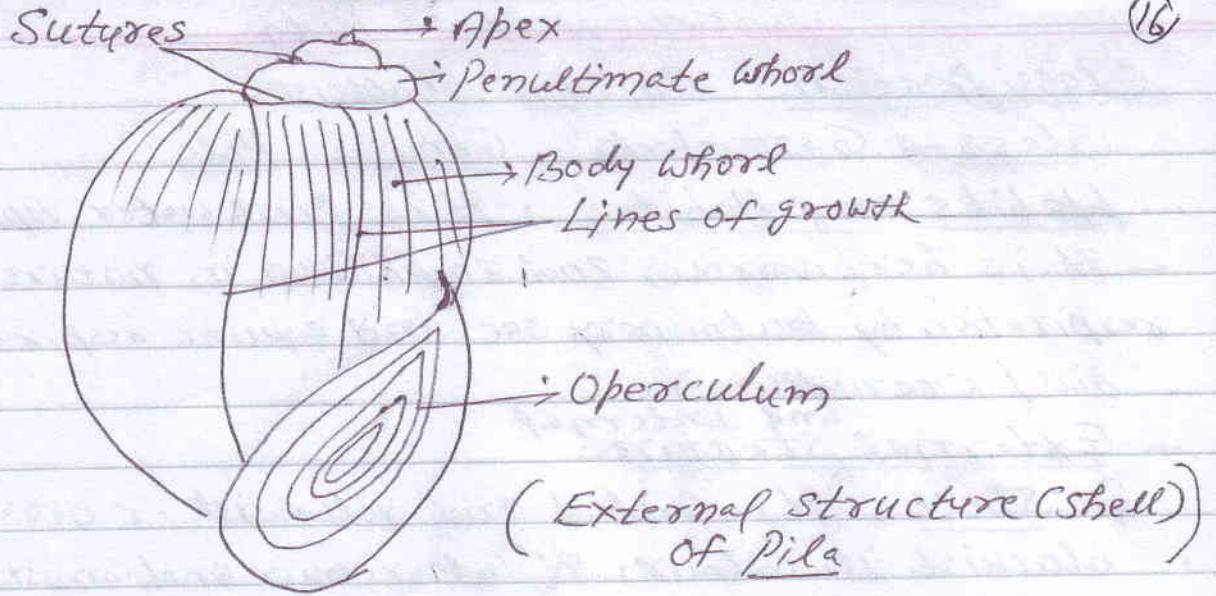 16
Sutures
Apex
Penultimate whorl
Body whorl
Lines of growth
Operculum
(External structure (shell)
of Pila)